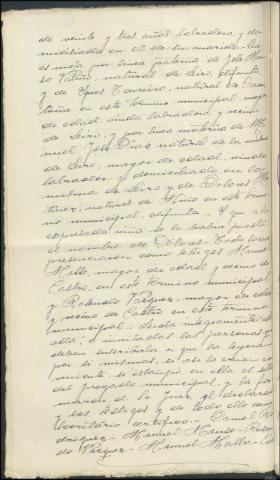 de veinte y tres años labradora, y do-
miciliada en el de su marido. Que
es nieta por línea paterna de José Man-
so Valiño, natural de Leiro, difunto,
y de Ynés Ferreiro, natural de Caran-
toña en este término municipal, mayor
de edad, viuda labradora y vecina
de Leiro; y por línea materna de Ma-
nuel José Díaz natural de la misma
de Leiro, mayor de edad, viudo
labrador y domiciliado en la
misma de Leiro y de Dolores
natural de Miño en este térmi-
no municipal, difunta. Y que a la
expresada niña se le había puesto
el nombre de Dolores. Todo lo cual
presenciaron como testigos Manuel
Mallo, mayor de edad y vecino de
Castro, en este término municipal
y Rolendo Vázquez, mayor de edad
y vecino de Castro en este término
municipal. Leída íntegramente esta
acta, e invitadas las personas que
deben suscribirla a que la leyeran
por sí mismas, si así lo creían con-
veniente, se estampó en ella el sello
del juzgado municipal, y la fir-
maron el Sr. Juez, el declarante
y los testigos y de todo ello como
Secretario certifico. Daniel Ro-
dríguez. Manuel Manso.
do Vázquez. Manuel Mallo.